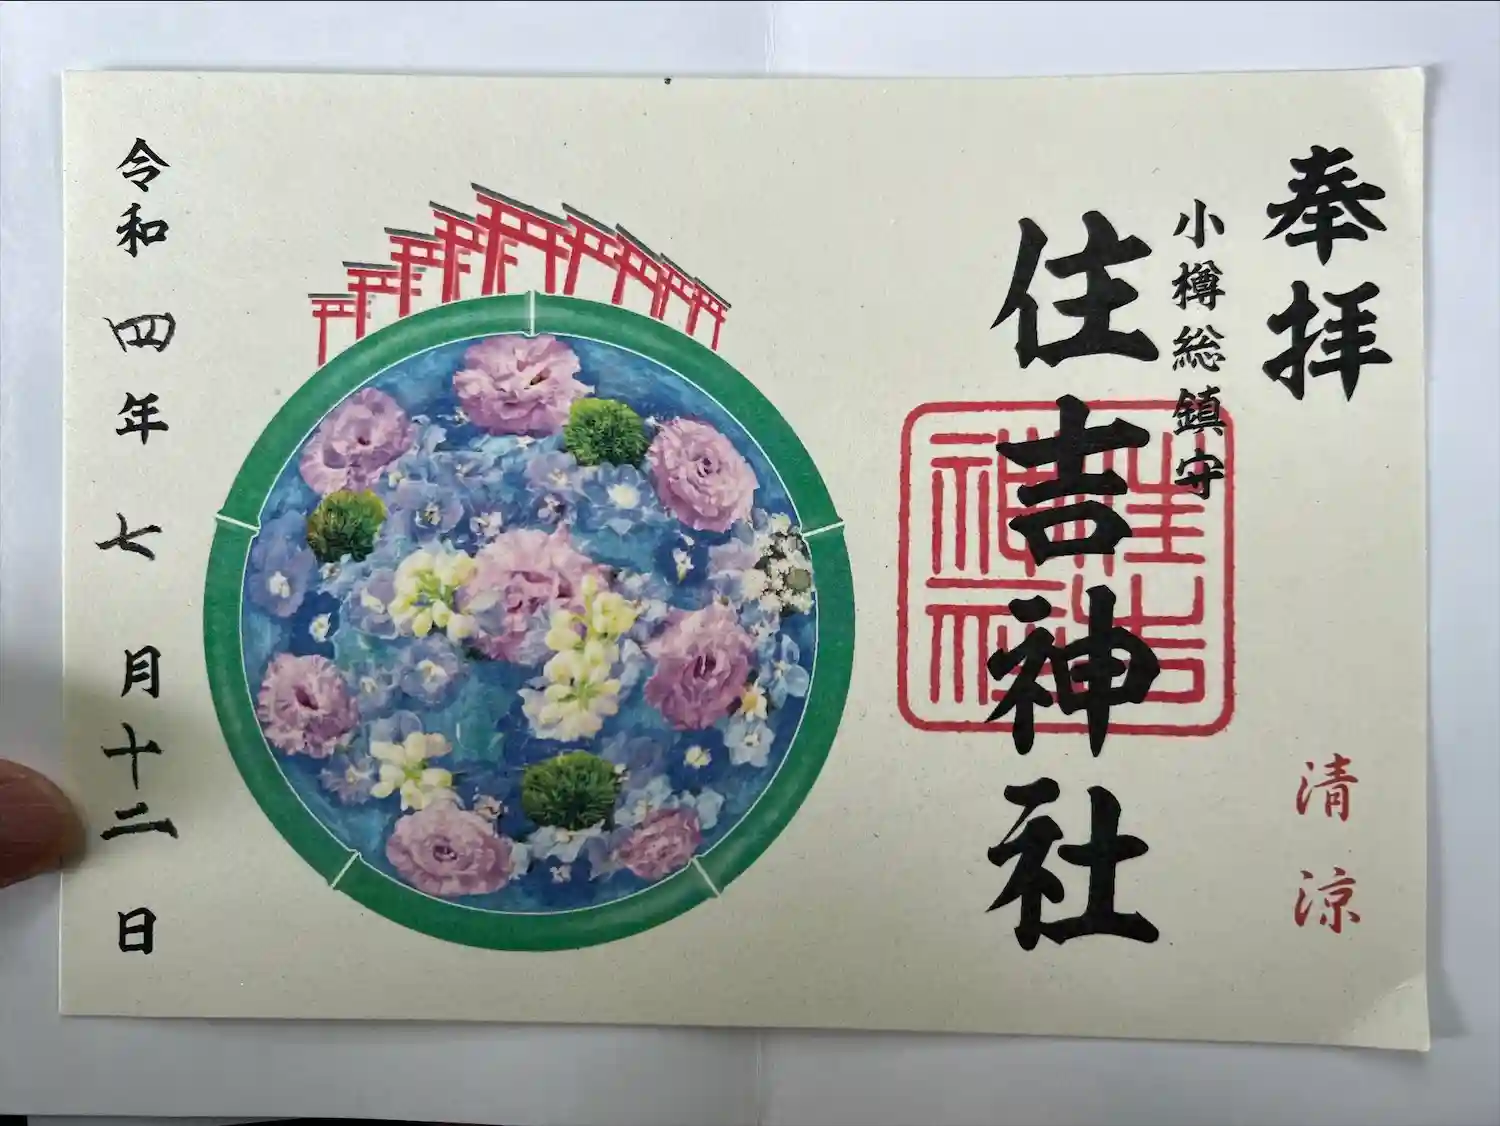 奉拝
小樽総鎮守
住吉神社
住吉
神社
清涼
令和四年七月十二日